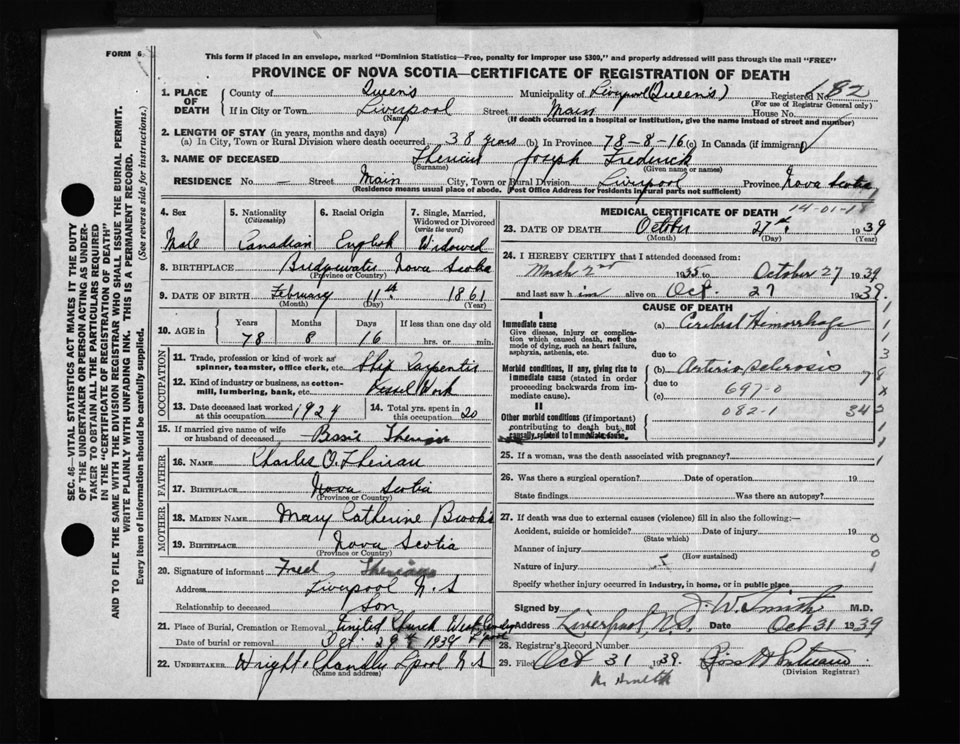 FORM 6
This form if placed in an envelope, marked "Dominion Statistics—Free, penalty for improper use $300," and properly addressed will pass through the mail "FREE"
PROVINCE OF NOVA SCOTIA—CERTIFICATE OF REGISTRATION OF DEATH
1. PLACE OF DEATH County of Queen's Municipality of Liverpool (Queen's) Registered No. 182
(For use of Registrar General only)
If in City or Town Liverpool Street Main House No.
(Name) (If death occurred in a hospital or institution, give the name instead of street and number)
2. LENGTH OF STAY (in years, months and days)
(a) In City, Town or Rural Division where death occurred 38 years (b) In Province 78-8-16 (c) In Canada (if immigrant)
3. NAME OF DECEASED Joseph Frederick
(Surname) (Given name or names)
RESIDENCE No. — Street Main City, Town or Rural Division Liverpool Province Nova Scotia
(Residence means usual place of abode. Post Office Address for residents in rural parts not sufficient)
4. Sex Male
5. Nationality (Citizenship) Canadian
6. Racial Origin English
7. Single, Married, Widowed or Divorced (write the word) Widowed
8. BIRTHPLACE Bridgewater Nova Scotia
(Province or Country)
9. DATE OF BIRTH February 11th 1861
(Month) (Day) (Year)
10. AGE in Years Months Days If less than one day old
78 8 16 hrs. or min.
OCCUPATION
11. Trade, profession or kind of work as spinner, teamster, office clerk, etc. Ship Carpenter
12. Kind of industry or business, as cotton-mill, lumbering, bank, etc. Work
13. Date deceased last worked at this occupation 1924
14. Total yrs. spent in this occupation 20
15. If married give name of wife or husband of deceased Bessie
FATHER
16. NAME Charles O.
17. BIRTHPLACE Nova Scotia
(Province or Country)
MOTHER
18. MAIDEN NAME Mary Catherine Brooks
19. BIRTHPLACE Nova Scotia
(Province or Country)
20. Signature of informant Fred
Address Liverpool N.S
Relationship to deceased Son
21. Place of Burial, Cremation or Removal United Church
Date of burial or removal Oct. 29th 1939
22. UNDERTAKER Wright & Chandler L'pool N.S
(Name and address)
MEDICAL CERTIFICATE OF DEATH
14-01-1
23. DATE OF DEATH October 27th 1939
(Month) (Day) (Year)
24. I HEREBY CERTIFY that I attended deceased from:
March 2nd 1935 to October 27 1939
and last saw him alive on Oct. 27 1939.
CAUSE OF DEATH
I
Immediate cause
Give disease, injury or complication which caused death, not the mode of dying, such as heart failure, asphyxia, asthenia, etc.
(a) Cerebral Hemorrhage
due to
Morbid conditions, if any, giving rise to immediate cause (stated in order proceeding backwards from immediate cause).
(b) Arterio Sclerosis
due to 697-0
(c)
082-1 342
II
Other morbid conditions (if important) contributing to death but not causally related to immediate cause.
25. If a woman, was the death associated with pregnancy?
26. Was there a surgical operation? Date of operation 19
State findings Was there an autopsy?
27. If death was due to external causes (violence) fill in also the following:—
Accident, suicide or homicide? Date of injury 19
(State which)
Manner of injury
(How sustained)
Nature of injury
Specify whether injury occurred in industry, in home, or in public place
Signed by J. W. Smith M.D.
Address Liverpool, N.S. Date Oct 31 1939
28. Registrar's Record Number
29. Filed Oct 31 1939.
(Division Registrar)
SEC. 46—VITAL STATISTICS ACT MAKES IT THE DUTY
OF THE UNDERTAKER OR PERSON ACTING AS UNDER-
TAKER TO OBTAIN ALL THE PARTICULARS REQUIRED
IN THE "CERTIFICATE OF REGISTRATION OF DEATH"
AND TO FILE THE SAME WITH THE DIVISION REGISTRAR WHO SHALL ISSUE THE BURIAL PERMIT.
WRITE PLAINLY WITH UNFADING INK. THIS IS A PERMANENT RECORD.
Every item of information should be carefully supplied. (See reverse side for instructions.)